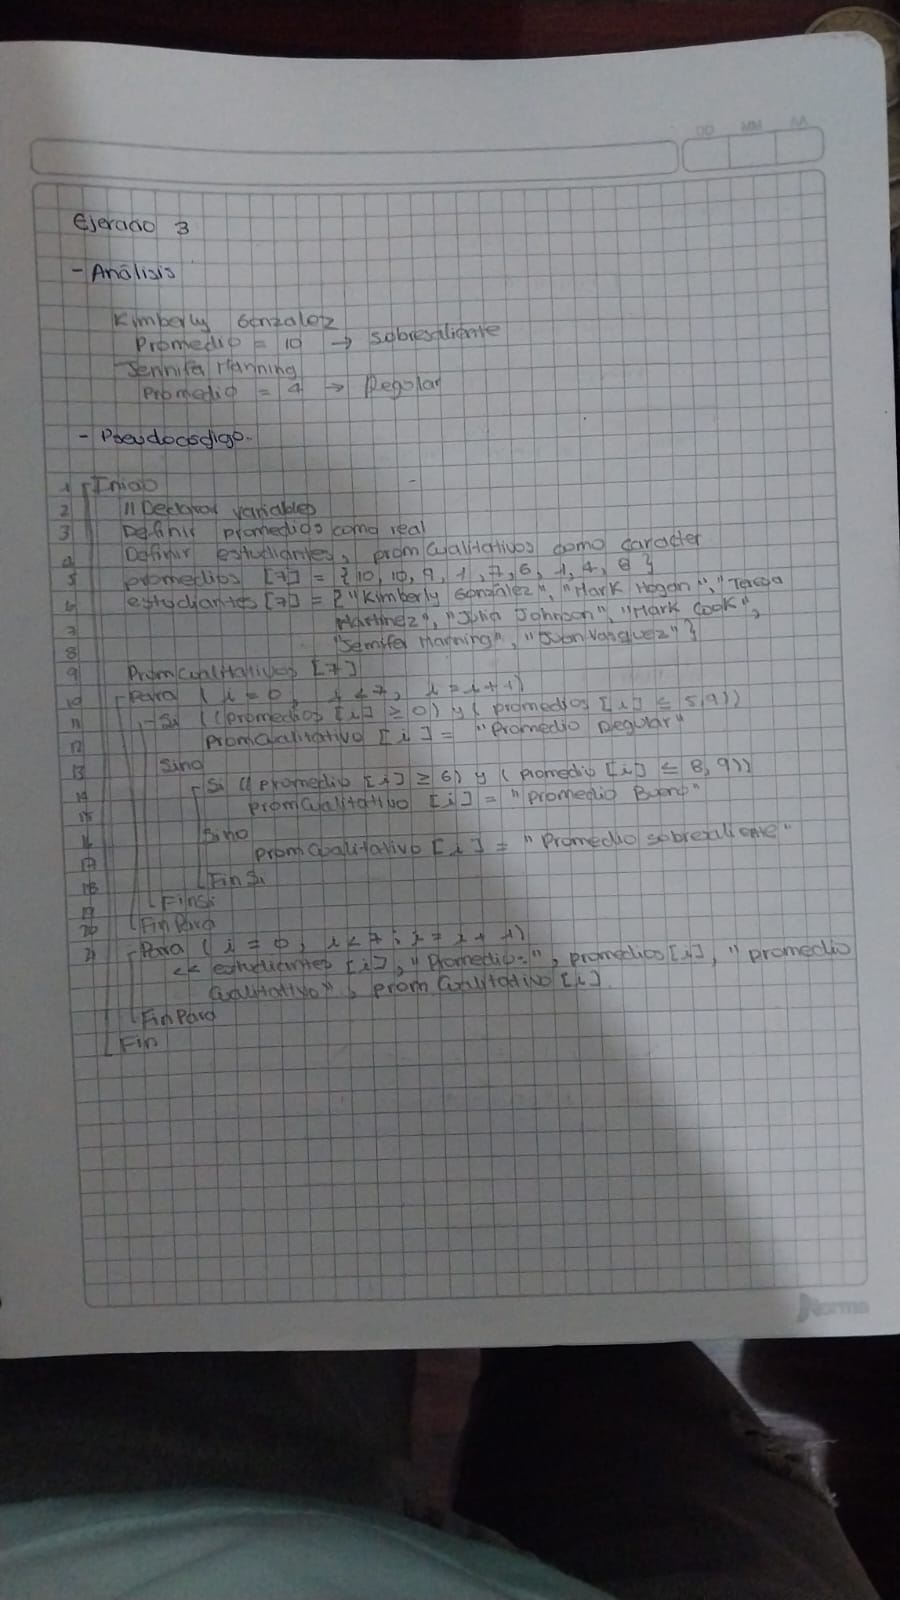 DD MM AA
Ejercicio 3
- Análisis
Kimberly Gonzalez
Promedio = 10 → sobresaliente
Jennifer Manning
Promedio = 4 → Regular
- Pseudocódigo.
1 Inicio
2 // Declarar variables
3 Definir promedios como real
4 Definir estudiantes, promCualitativos como caracter
5 promedios [7] = {10, 10, 9, 1, 7, 6, 1, 4, 8}
6 estudiantes [7] = {"Kimberly González", "Mark Hogan", "Teresa
7 Martinez", "Julia Johnson", "Mark Cook",
8 "Jennifer Manning", "Juan Vasquez"}
9 PromCualitativos [7]
10 Para (i = 0, i < 7, i = i + 1)
11 Si ((promedios [i] ≥ 0) y (promedios [i] ≤ 5,9))
12 promCualitativo [i] = "Promedio Regular"
13 Sino
14 Si ((promedio [i] ≥ 6) y (promedio [i] ≤ 8,9))
15 promCualitativo [i] = "Promedio Bueno"
16 Sino
17 promCualitativo [i] = "Promedio sobresaliente"
18 FinSi
19 FinSi
20 FinPara
21 Para (i = 0, i < 7; i = i + 1)
<< estudiantes [i], "Promedio=", promedios [i], "promedio
Cualitativo", promCualitativo [i]
FinPara
Fin
Norma